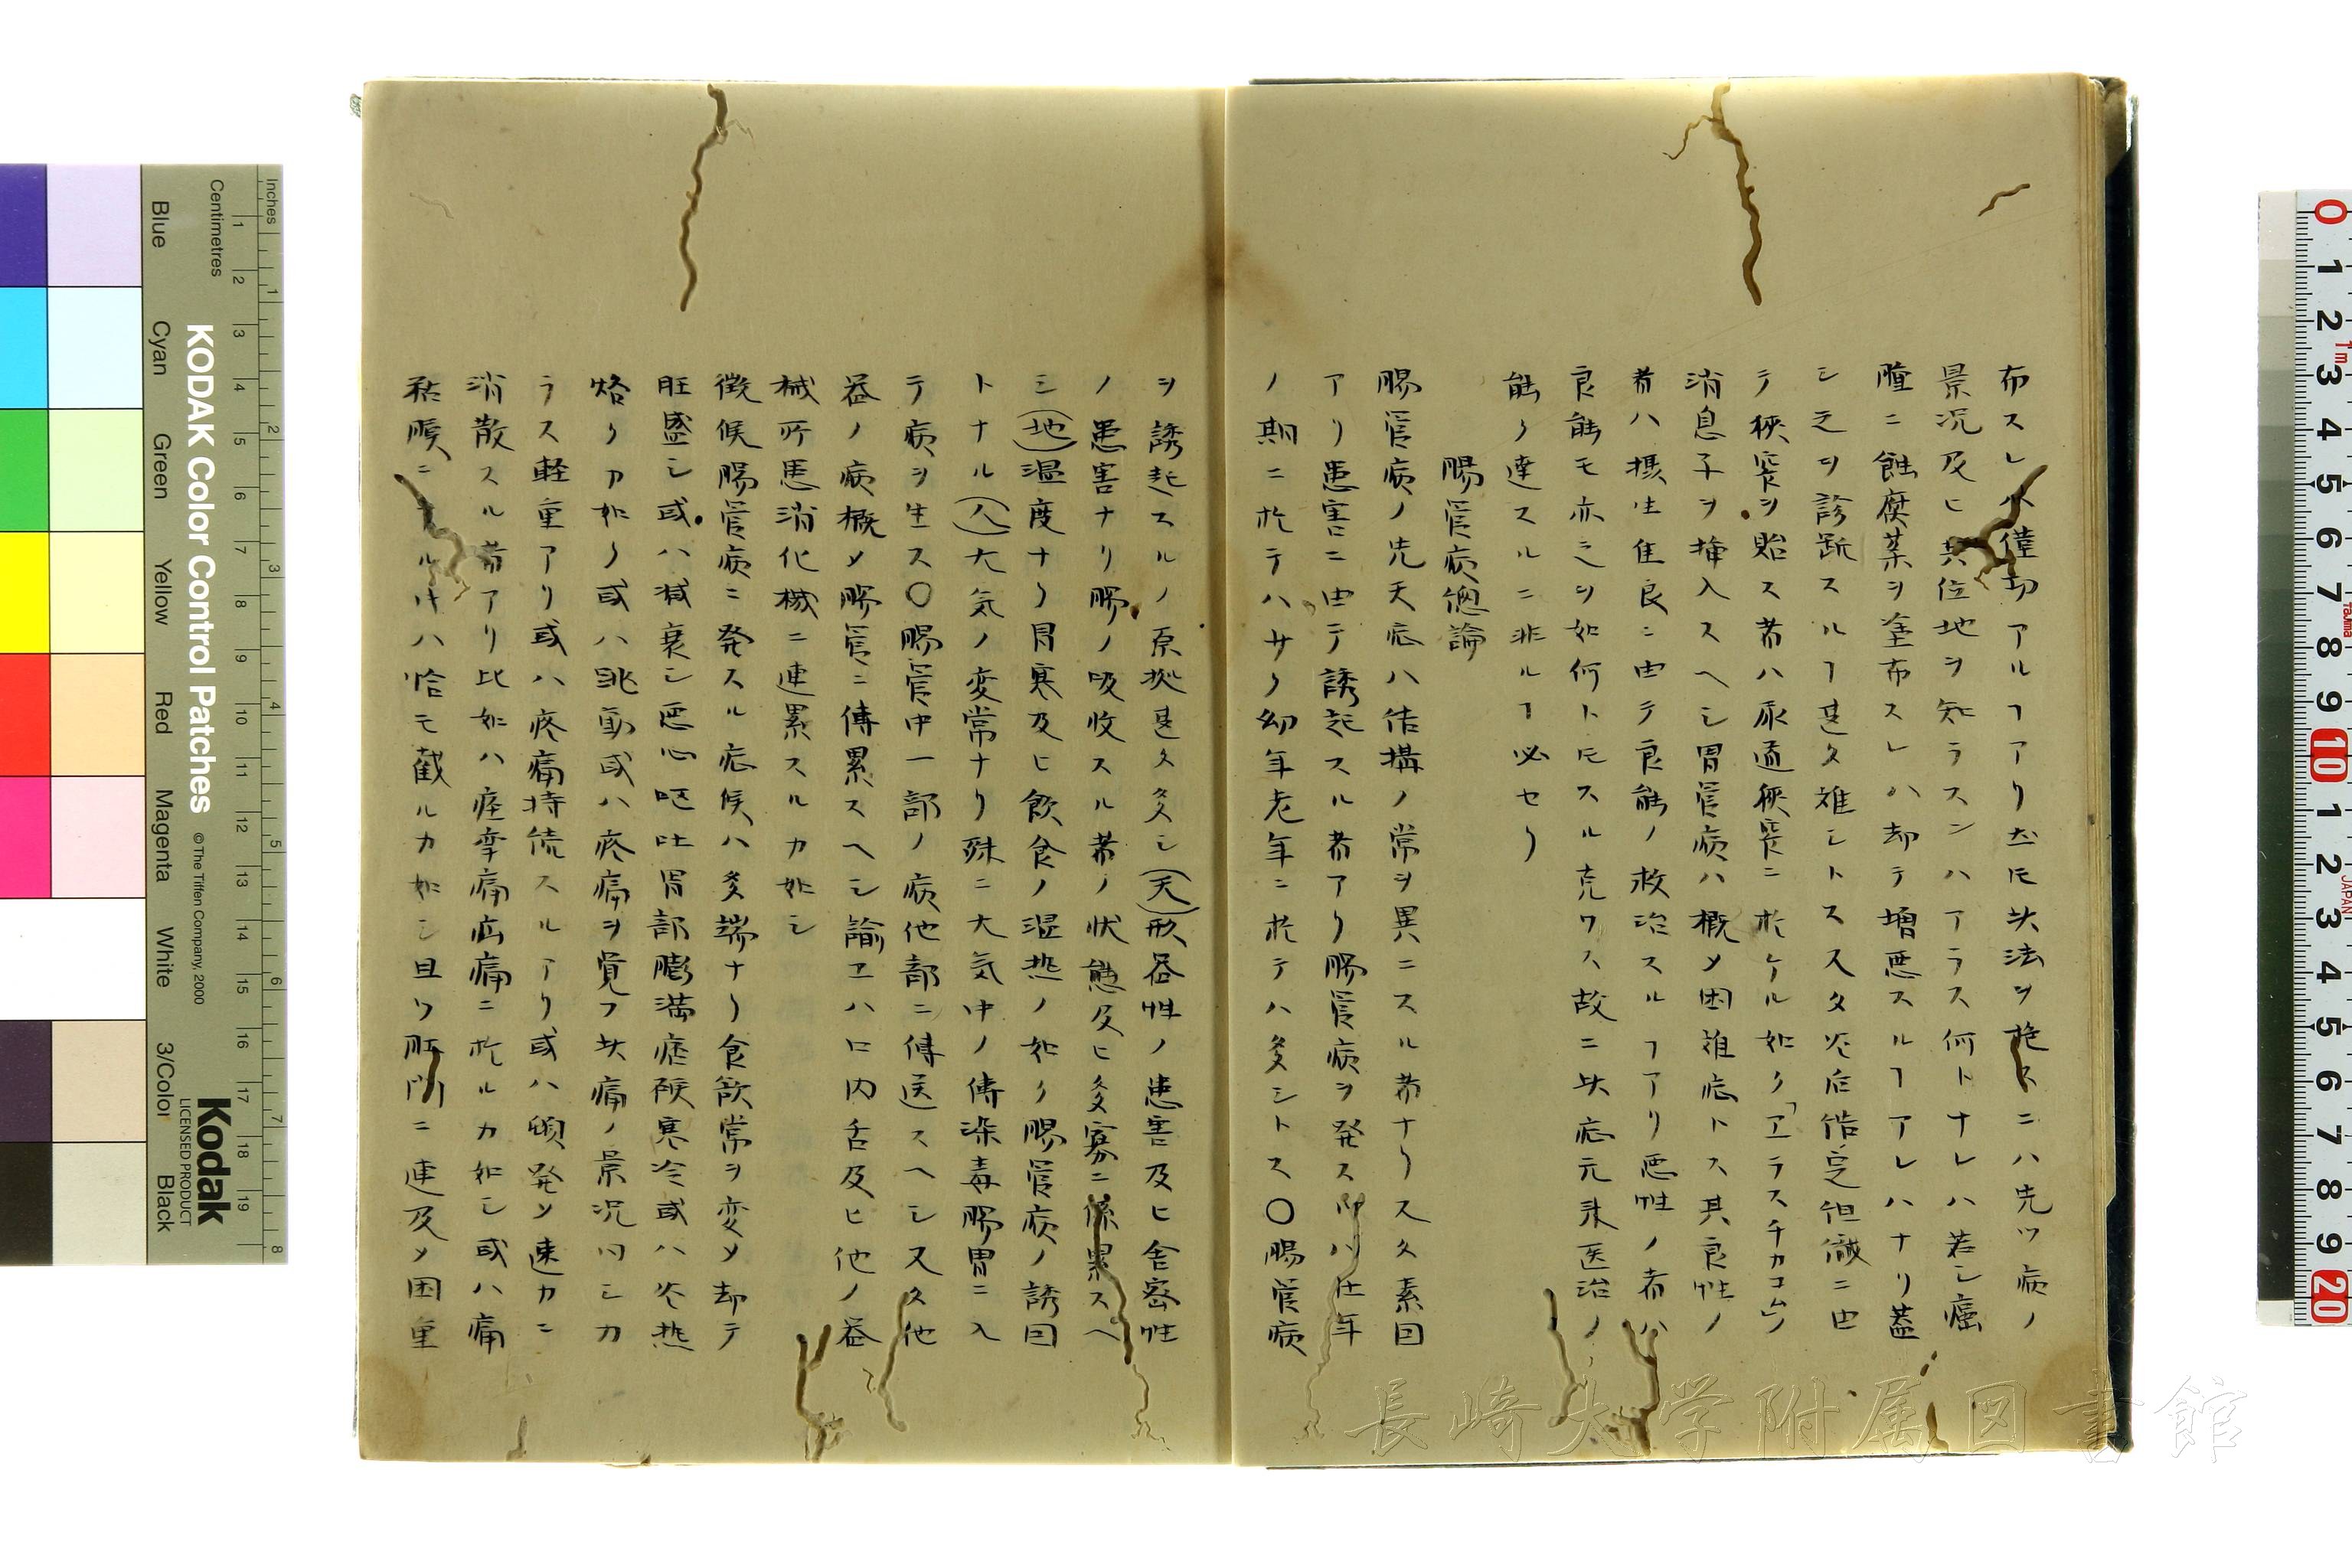 布スレハ僅功アルヿアリ然𪜈此法ヲ施スニハ先ツ病ノ
景況及ヒ其位地ヲ知ラスンハアラス何トナレハ若シ癌
腫ニ蝕腐薬ヲ塗布スレハ却テ増悪スルヿアレハナリ蓋
シ之ヲ診断スルヿ甚タ難シトス又タ炎后
テ狭窄ヲ貽ス者ハ尿道狭窄ニ於ケル如ク「
消息子ヲ挿入スヘシ胃管病ハ概メ困難症トス其良性ノ
者ハ摂生佳良ニ由テ良能ノ救治スルヿアリ悪性ノ者ハ
良能モ亦之ヲ如何ト𪜈スル克ワス故ニ此症元来医治ノ
能ク達スルニ非ルヿ必セリ
腸管病總論
腸管病ノ先天症ハ結搆ノ常ヲ異ニスル者ナリ又久素因
アリ患害ニ由テ誘起スル者アリ腸管病ヲ発ス 壮年
ノ期ニ於テハ少ク幼年老年ニ於テハ多シトス〇腸管病
ヲ誘起スルノ原拠甚タ多シ(天)形器性ノ患害及ヒ舎密性
ノ患害ナリ腸ノ吸收スル者ノ状態及ヒ多寡ニ係累スヘ
シ(地)温度ナリ胃寒及ヒ飲食ノ温熱ノ如ク腸管病ノ誘因
トナル(人)大気ノ変常ナリ殊ニ大気中ノ傳染毒腸胃ニ入
テ病ヲ生ス〇腸管中一部ノ病他部ニ傳送スヘシ又久他
器ノ病概メ腸管ニ傳累スヘシ諭ヱハ口内舌及ヒ他ノ器
械所患消化機ニ連累スルカ如シ
徴候腸管病ニ発スル症候ハ多端ナリ食飲常ヲ変メ却テ
旺盛シ或ハ減衰シ悪心嘔吐胃部膨満痙 寒冷或ハ炎熱
烙クカ如ク或ハ跳動或ハ疼痛ヲ覚フ此痛ノ景況 シカ
ラス軽重アリ或ハ疼痛持続スルアリ或ハ頻発メ速カニ
消散スル者アリ比如ハ痙攣痛疝痛ニ於ルカ如シ或ハ痛
ルキハ恰モ截ルカ如シ且ツ肛門ニ連及メ困重
Inches
Centimetres
Blue
Cyan
Green
Yellow
Red
Magenta
White
3/Color
Black
KODAK Color Control Patches
© The Tiffen Company, 2000
Kodak
LICENSED PRODUCT
長崎大学附属図書館